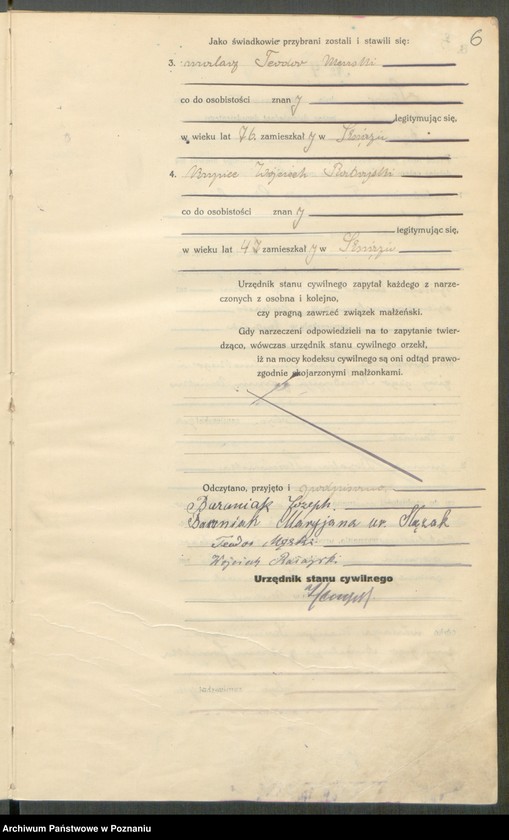 6
Jako świadkowie przybrani zostali i stawili się:
3. murlarz Teodor Menski
co do osobistości znan y
legitymując się,
w wieku lat 76 zamieszkał y w Książu
4. Wojciech
co do osobistości znan y
legitymując się,
w wieku lat 47 zamieszkał y w Książu
Urzędnik stanu cywilnego zapytał każdego z narze-
czonych z osobna i kolejno,
czy pragną zawrzeć związek małżeński.
Gdy narzeczeni odpowiedzieli na to zapytanie twier-
dząco, wówczas urzędnik stanu cywilnego orzekł,
iż na mocy kodeksu cywilnego są oni odtąd prawo-
zgodnie skojarzonymi małżonkami.
Odczytano, przyjęto i podpisano
Baraniak Józeph.
Baraniak Maryjana ur. Ślązak
Teodor Męski
Wojciech Ratajski
Urzędnik stanu cywilnego
Archiwum Państwowe w Poznaniu